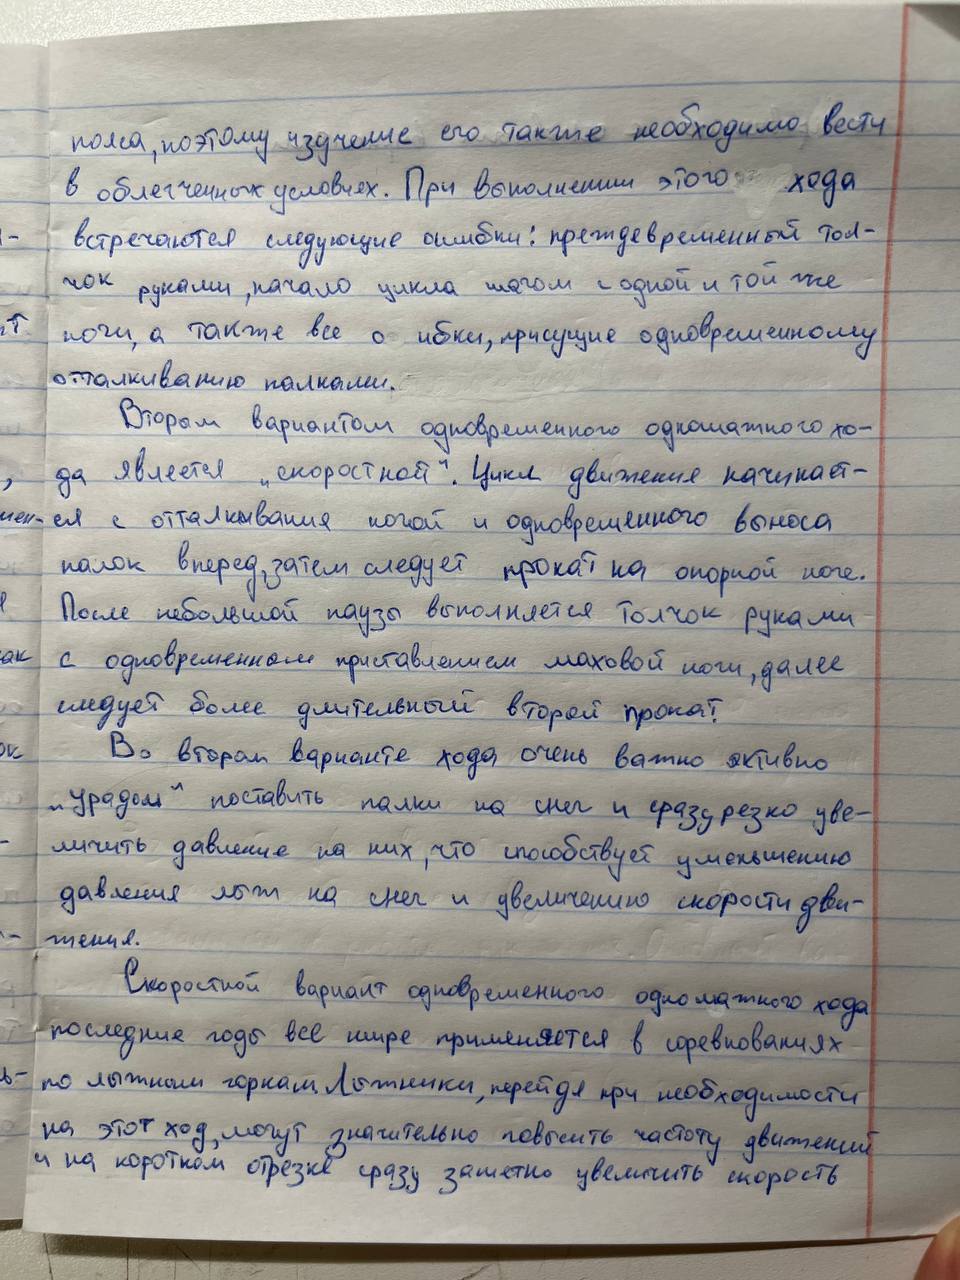 пояса, поэтому изучение его также необходимо вести
в облегченных условиях. При выполнении этого хода
встречаются следующие ошибки: преждевременный тол-
чок руками, начало цикла шагом с одной и той же
ноги, а также все о ибки, присущие одновременному
отталкиванию палками.
Вторым вариантом одновременного одношажного хо-
да является „скоростной“. Цикл движения начинает-
ся с отталкывания ногой и одновременного выноса
палок вперед, затем следует прокат на опорной ноге.
После небольшой паузы выполняется толчок руками
с одновременном приставлением маховой ноги, далее
следует более длительный второй прокат.
Во втором варианте хода очень важно активно
„ударом“ поставить палки на снег и сразу резко уве-
личить давление на них, что способствует уменьшению
давления лыж на снег и увеличению скорости дви-
жения.
Скоростной вариант одновременного одношажного хода
последние годы все шире применяется в соревнованиях
по лыжным гонкам. Лыжники, перейдя при необходимости
на этот ход, могут значительно повысить частоту движений
и на коротком отрезке сразу заметно увеличить скорость